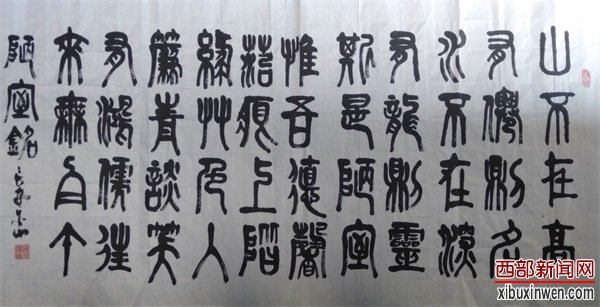 山不在高
有僊則名
水不在深
有龍則靈
斯是陋室
惟吾德馨
苔痕上階
綠艸色入
簾青談笑
有鴻儒往
來無白丁
陋室銘
西部新闻网
xibuxinwen.com